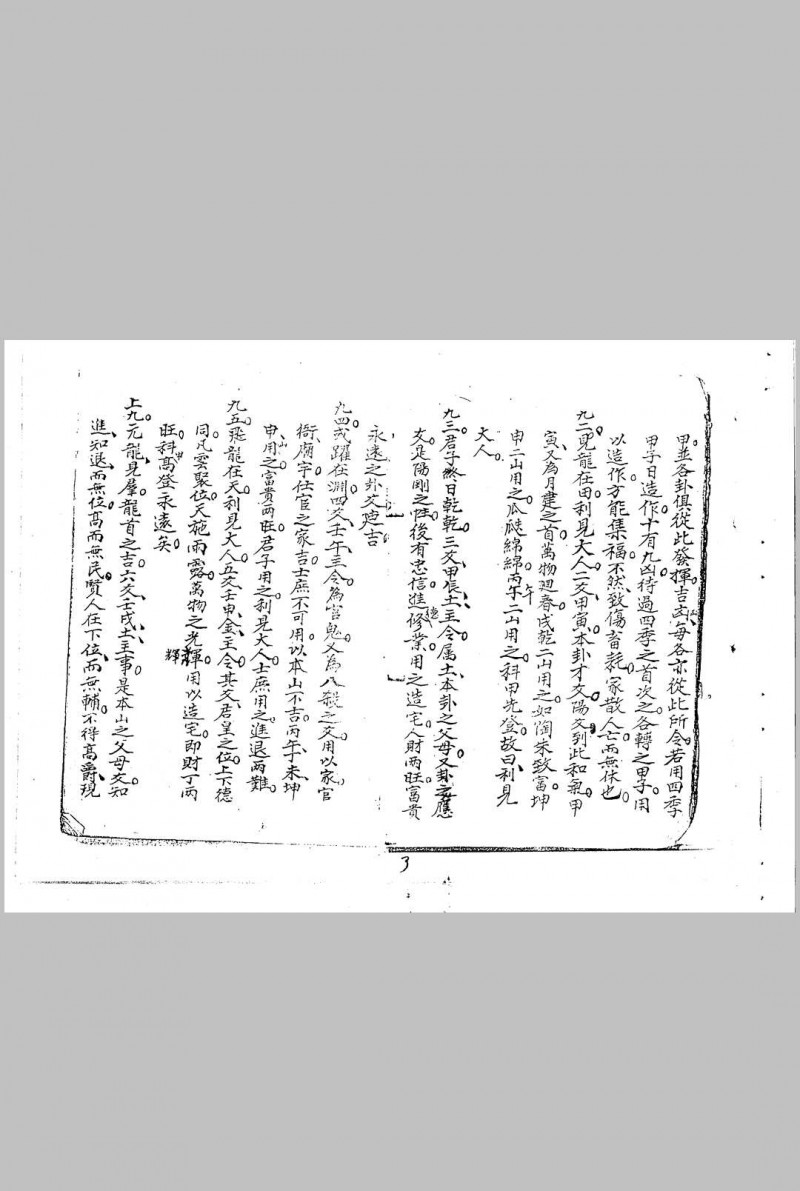 甲並各卦俱從此發揮。吉凶每各亦從此所令。若用四季
甲子日造作。十有九凶。待過四季之首。次之各轉之甲子。用
以造作。方能集福。不然。致傷畜耗。家散人亡。而無休也。
九二。見龍在田。利見大人。二爻甲寅。本卦才爻。陽爻到此和氣。甲
寅又為月建之首。萬物迎春。戌乾二山用之。如陶朱致富。坤
申二山用之。瓜瓞綿綿。丙午二山用之。科甲先登。故曰利見
大人。
九三。君子終日乾乾。三爻甲辰。土主令。屬土。本卦之父母。又卦之應
爻。是陽剛之性。後有忠信進德修業。用之造宅。人財兩旺。富貴
永遠之卦爻。迪吉
九四。或躍在淵。四爻壬午。主令為官鬼。又為八殺之爻。用以家官
衙廟宇仕宦之家吉。士庶不可用。以本山不吉。丙午子未坤
申山用之。富貴兩旺。君子用之。利見大人。士庶用之。進退兩難。
九五。飛龍在天。利見大人。五爻壬申。金主令。其爻君皇之位。上下德
同。凡雲聚位。天施雨露。萬物之光輝。用以造宅。即財丁兩
旺。科甲高登。永遠矣。
輝
上九。亢龍見羣龍首之吉。六爻壬戌。土主事。是本山之父母爻。知
進知退。而無位。高而無民。賢人在下位。而無輔。不得高爵。現
3